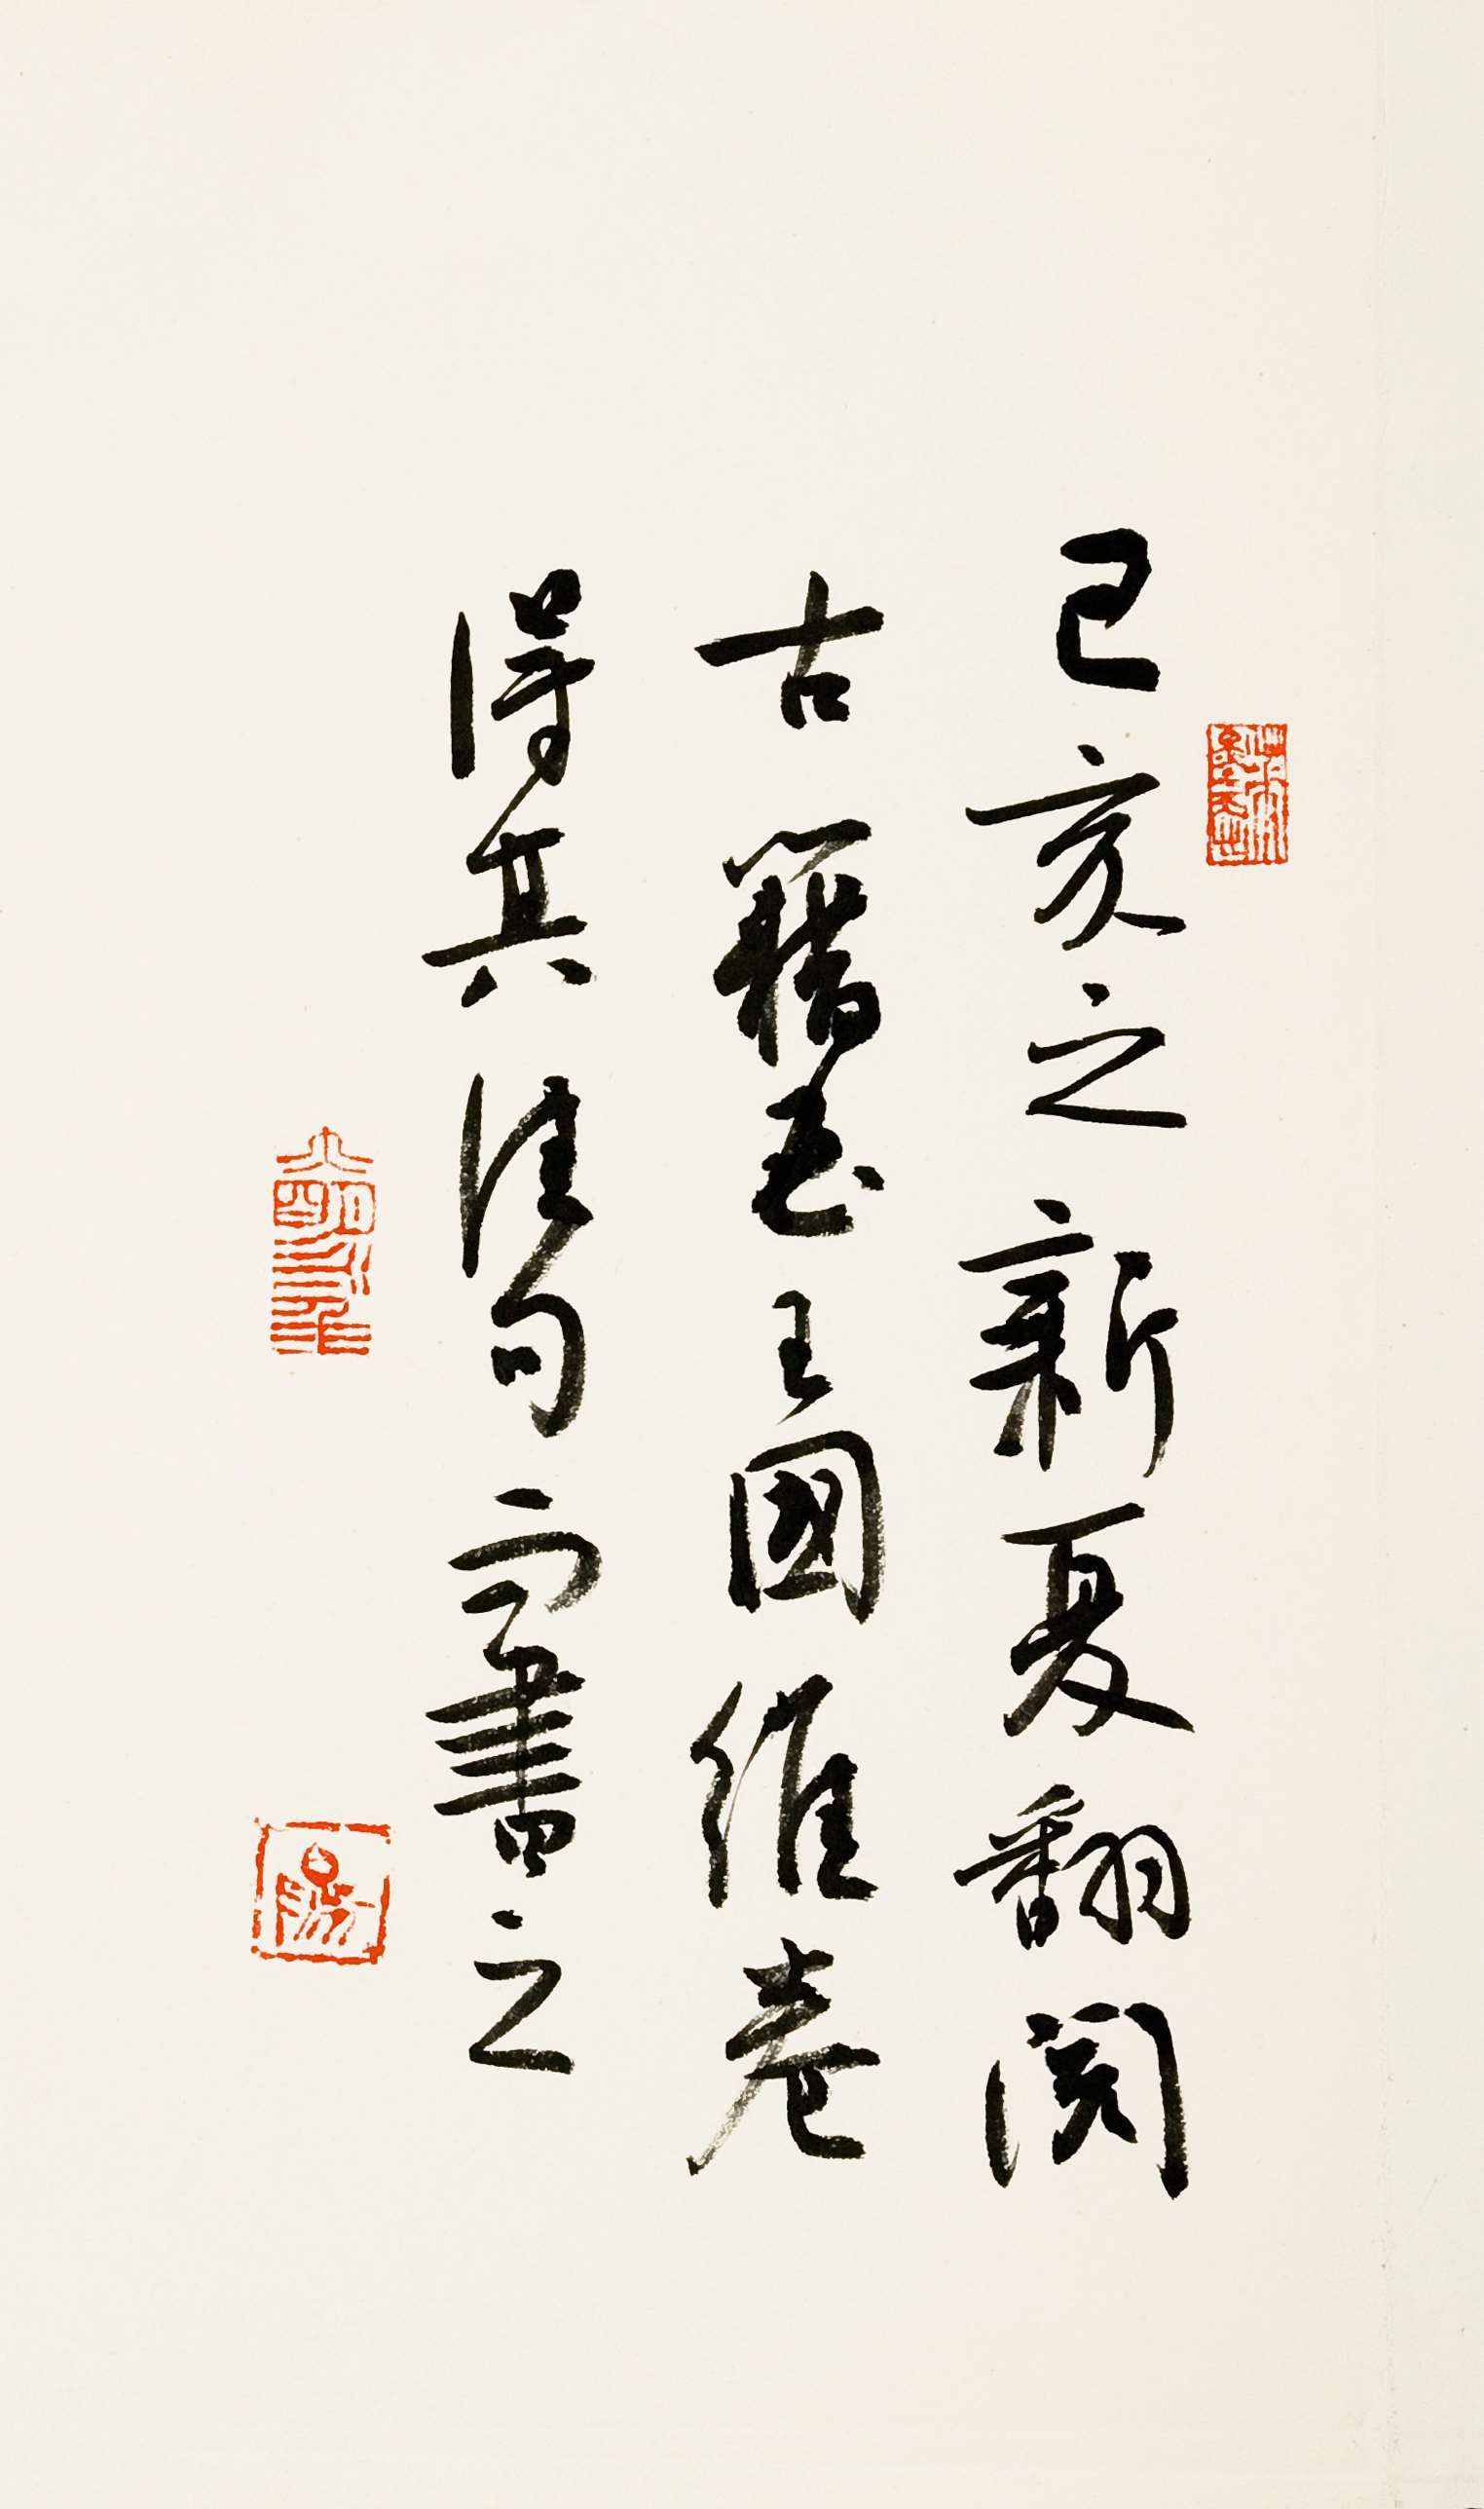 己亥之新夏翻閱
古籍至王國維卷
得其佳句而書之